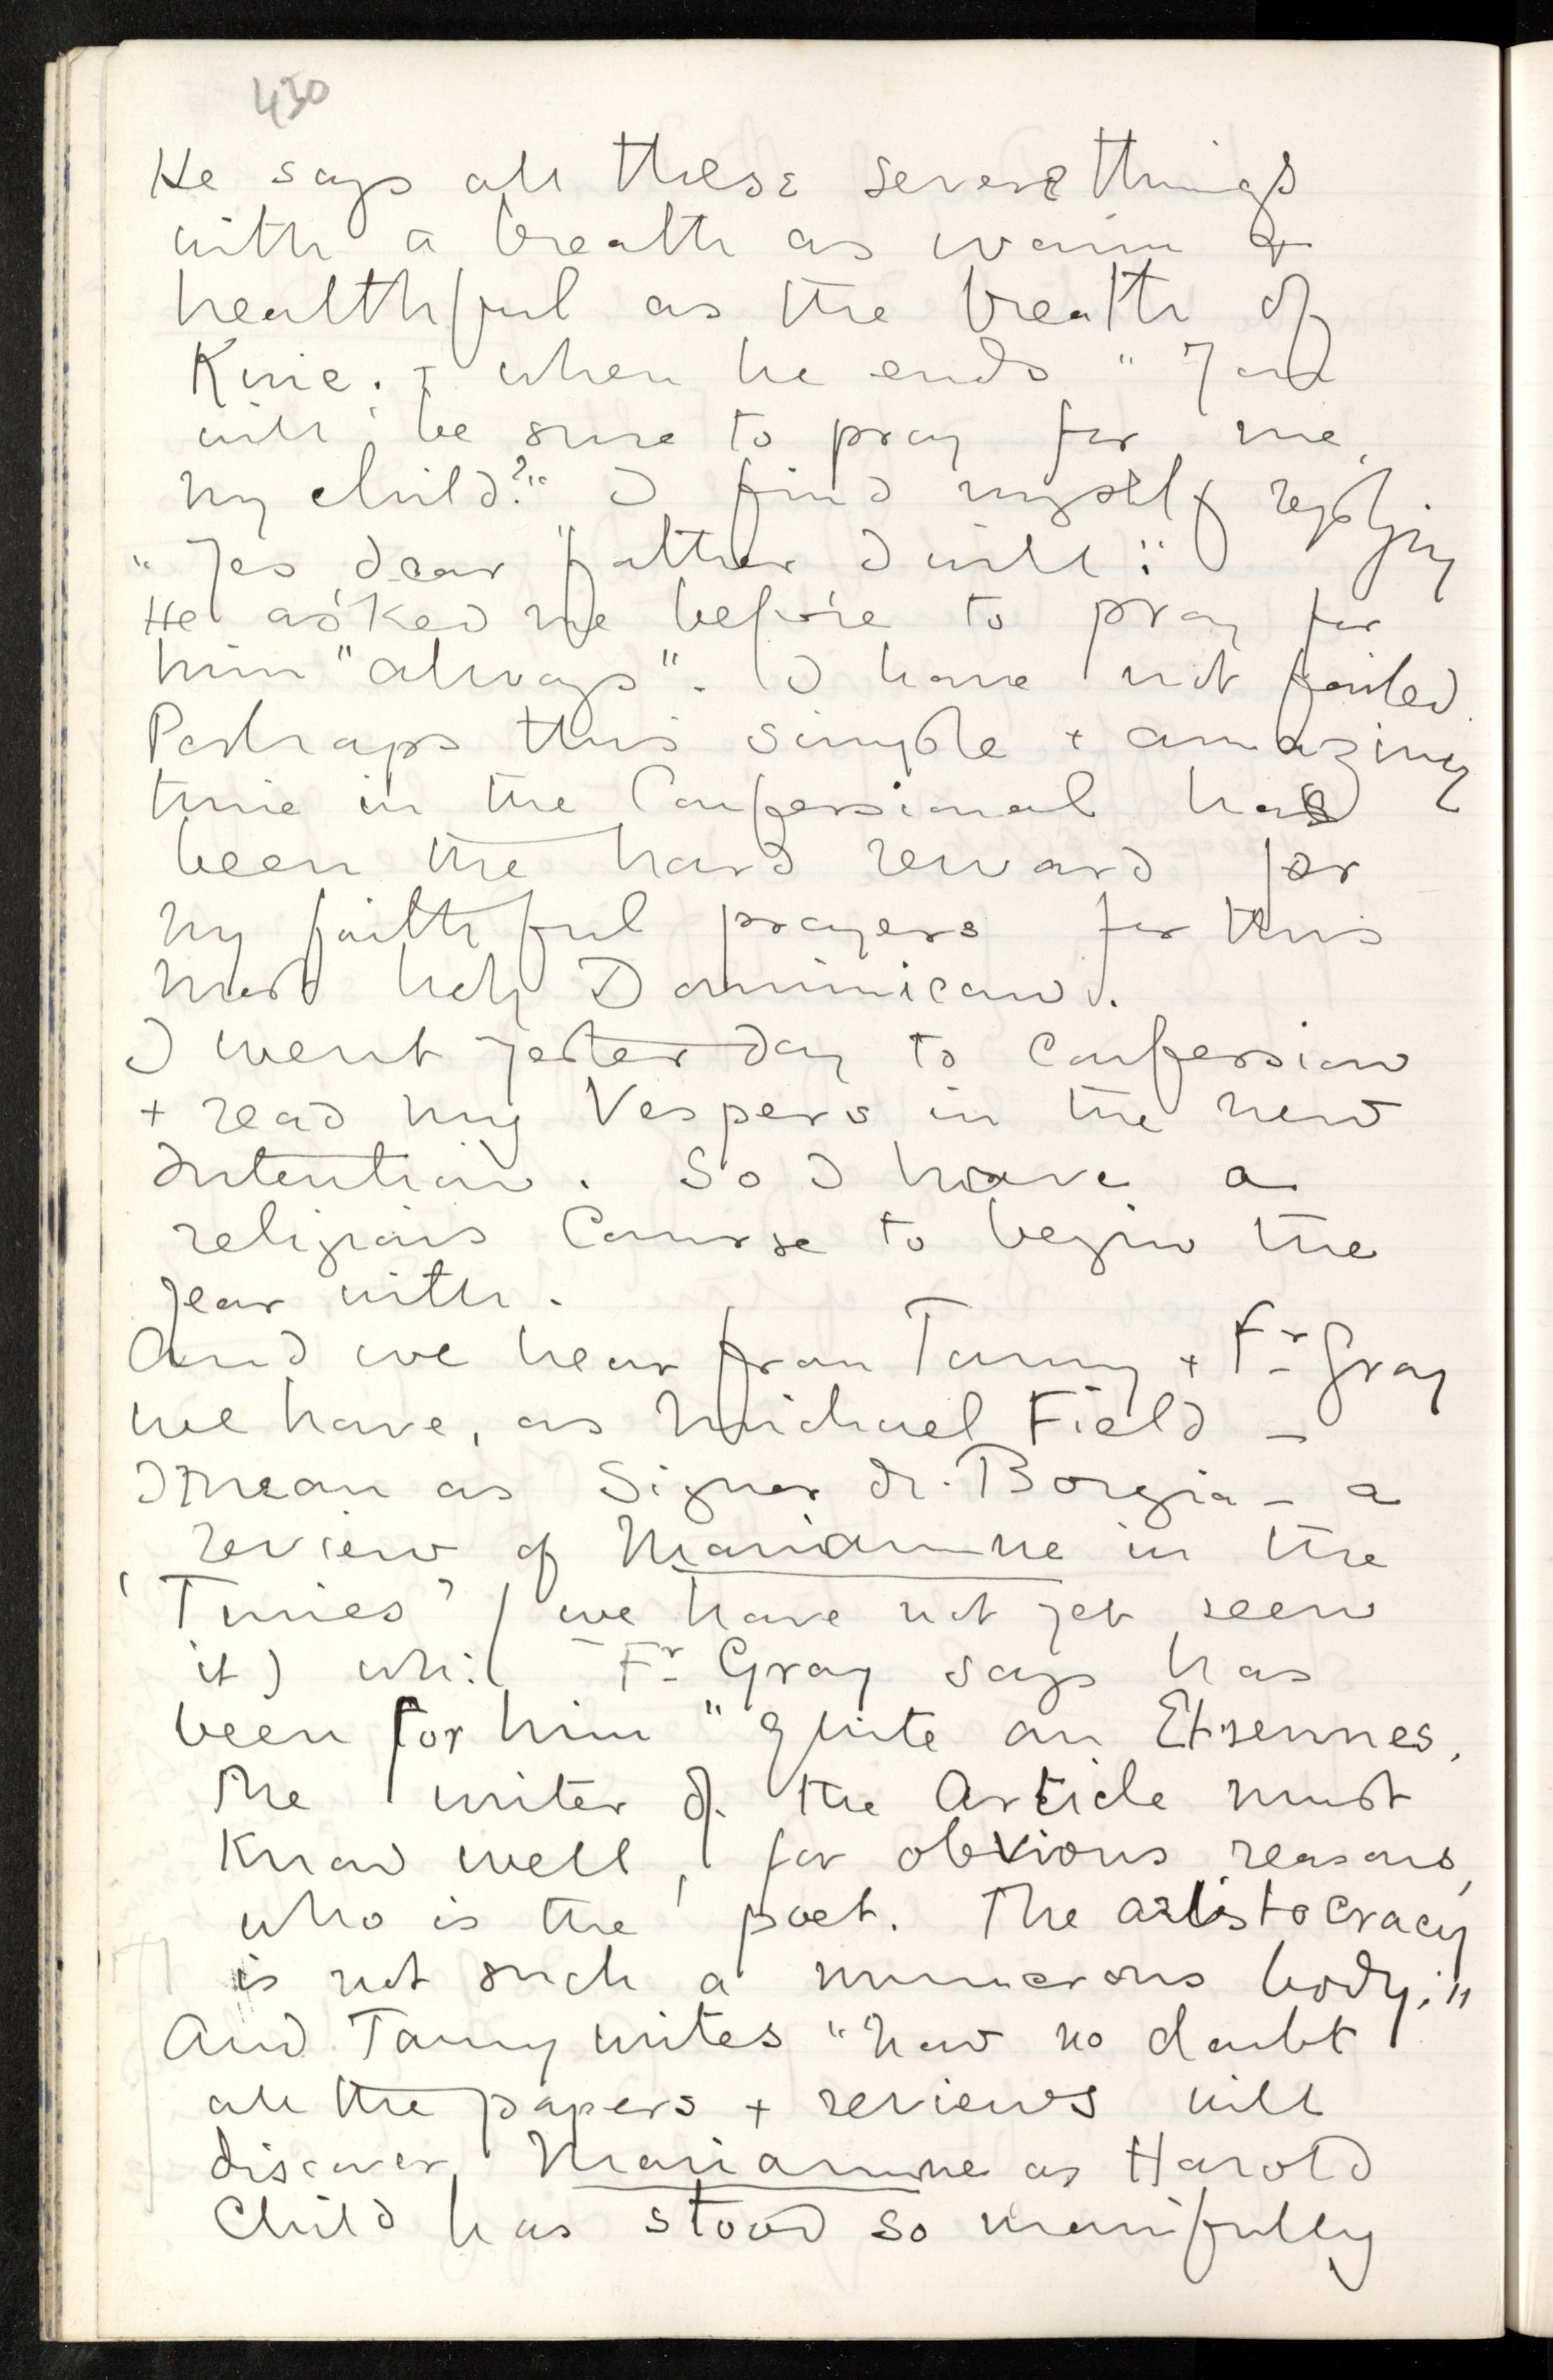 430
He says all these severe things
with a breath as warm &
healthful as the breath of
Kine. + when he ends "You
will be sure to pray for me,
my child?" I find myself replying
"Yes dear father I will":
He asked me before to pray for
him "always". I have not failed.
Perhaps this simple + amazing
time in the Confessional has
been the hard reward for
my faithful prayers for this
most holy Dominican.
I went yesterday to Confession
+ read my Vespers in the new
Intention. So I have a
religious Course to begin the
year with.
And we hear from Tommy + Fr Gray
we have, as Michael Field –
I mean as Signor di Borgia – a
review of Mariamne in the
'Times' (we have not yet seen
it) wh: Fr Gray says has
been for him "quite an Etrennes.
The writer of the Article must
Know well, for obvious reasons,
who is the poet. The aristocracy
is not such a numerous body."
And Tommy writes "now no doubt
all the papers + reviews will
discover Mariamne as Harold
Child has stood so manfully